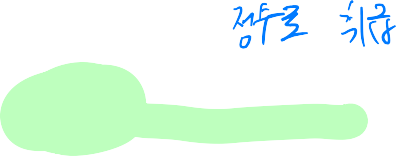 정수로 취급